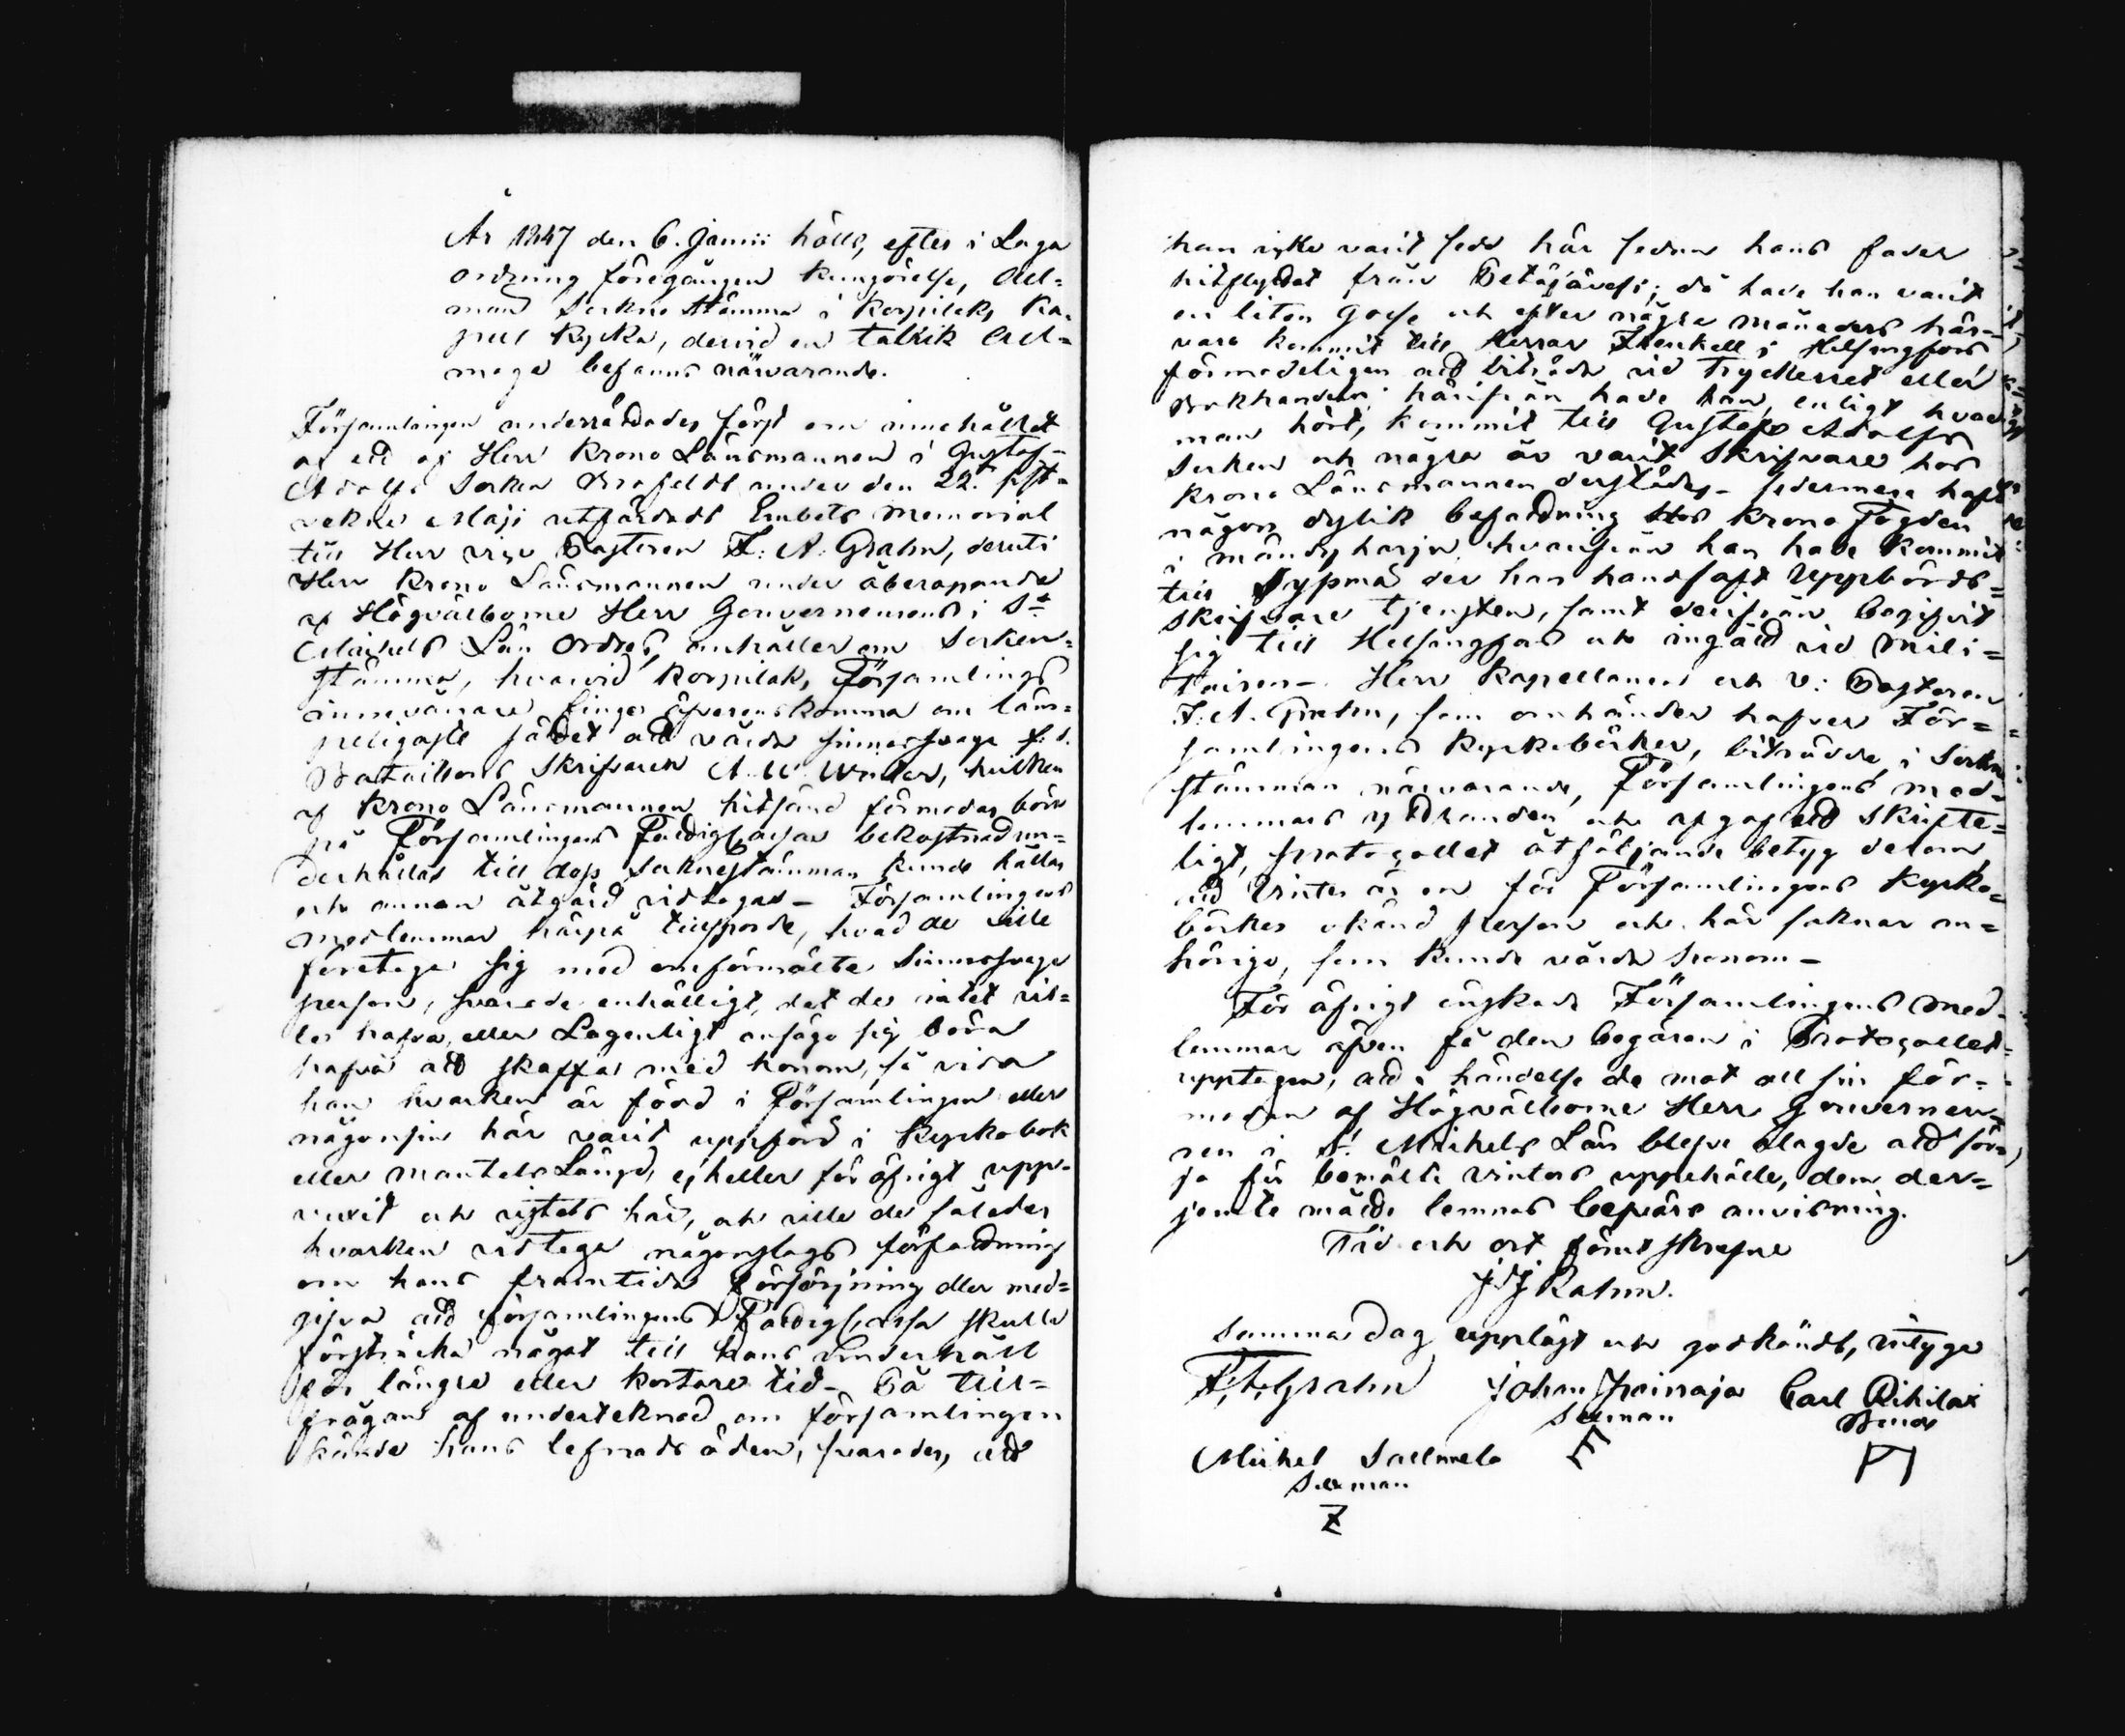 År 1847 den 6. Junii hölls, efter i Laga
ordning föregången kungörelse, All-
män Sockne Stämma i Korpilaks Ka-
pell Kyrka, dervid en talrik All-
moge befanns närvarande.
Församlingen underrättades först om innehållet
af ett af Herr Krono Länsmannen i Gustaf-
Adolfs Socken under den 22. sist-
vekne Maji utfärdadt Embets Memorial
till Herr vice Pastoren F. A. Grahn, deruti
Herr Krono Länsmannen under åberopande
af Högvälborne Herr Gouverneurens i S:t
Michels Län Ordres, anhåller om Socken-
stämma, hvarvid Korpilaks Församlings
innevånare finge öfverenskomma om läm-
peligaste sättet att vårda sinnessvage f. d.
Bataillons Skrifvaren A. W. Winter, hvilken
af Krono Länsmannen hitsänd förmodas böra
på Församlingens Fattigcassas bekostnad un-
derhållas till dess Socknestämman kunde hållas
och annan åtgärd vidtagas – Församlingens
medlemmar härpå tillsporde, hvad de ville
företaga sig med omförmälte Sinnessvage
person, svarade enhälligt, det de intet vil-
le hafva, eller Lagenligt ansågo sig böra
hafva att skaffa med honom, så vida
han hvarken är född i Församlingen eller
någonsin här varit uppförd i Kyrkobok
eller Mantals Längd, ej heller för öfrigt upp-
vuxit och vistats här, och ville de således
hvarken vidtaga någonslags författning
om hans framtida försörjning eller med-
gifva att församlingens Fattigcassa skulle
försträcka något till hans Underhåll
för längre eller kortare tid – På till-
frågan af undertecknad om församlingen
kände hans lefnads öden, svarades, att
han icke varit sedd här sedan hans fader
hitflyttat från Petäjävesi; då hade han varit
en liten gosse och efter några månaders här-
varo kommit till Herrar Frenckell i Helsingfors
förmodeligen att biträda vid Tryckeriet eller
Bokhandeln; härifrån hade han, enligt hvad
man hört, kommit till Gustaf Adolfs
Socken och några år varit Skrifvare hos
Krono Länsmannen derstädes – sedermera haft
någon dylik befattning hos Krono Fogden
i Mäntyharju hvarifrån han hade kommit
till Sysmä der han handhaft Uppbörds-
skrifvare tjensten, samt derifrån begifvit
sig till Helsingfors och ingått vid Mili-
tairen – Herr Kapellanen och V. Pastoren
F. A. Grahn, som omhänder hafver För-
samlingens Kyrkoböcker, biträdde i Sockne
stämman närvarande, Församlingens med-
lemmars yttranden och afgaf ett skrifte-
ligt, Protocollet åtföljande betyg derom
att Winter är en för Församlingens Kyrko-
böcker okänd person och här saknar an-
hörige, som kunde vårda honom –
För öfrigt önskade Församlingens med-
lemmar äfven få den begäran i Protocollet
upptagen, att i händelse de mot all sin för-
modan af Högvälborne Herr Gouverneu-
ren i S:t Michels Län blefve ålagde att sör-
ja för bemälte Winters uppehälle, dem der-
jemte måtte lemnas besvärs anvisning.
Tid och ort förut skrefne
Samma dag uppläst och godkändt, intyga
F. A. Grahn Johan Carl Rihilax
Sexman
Michel Sallmela
Sexman
Z